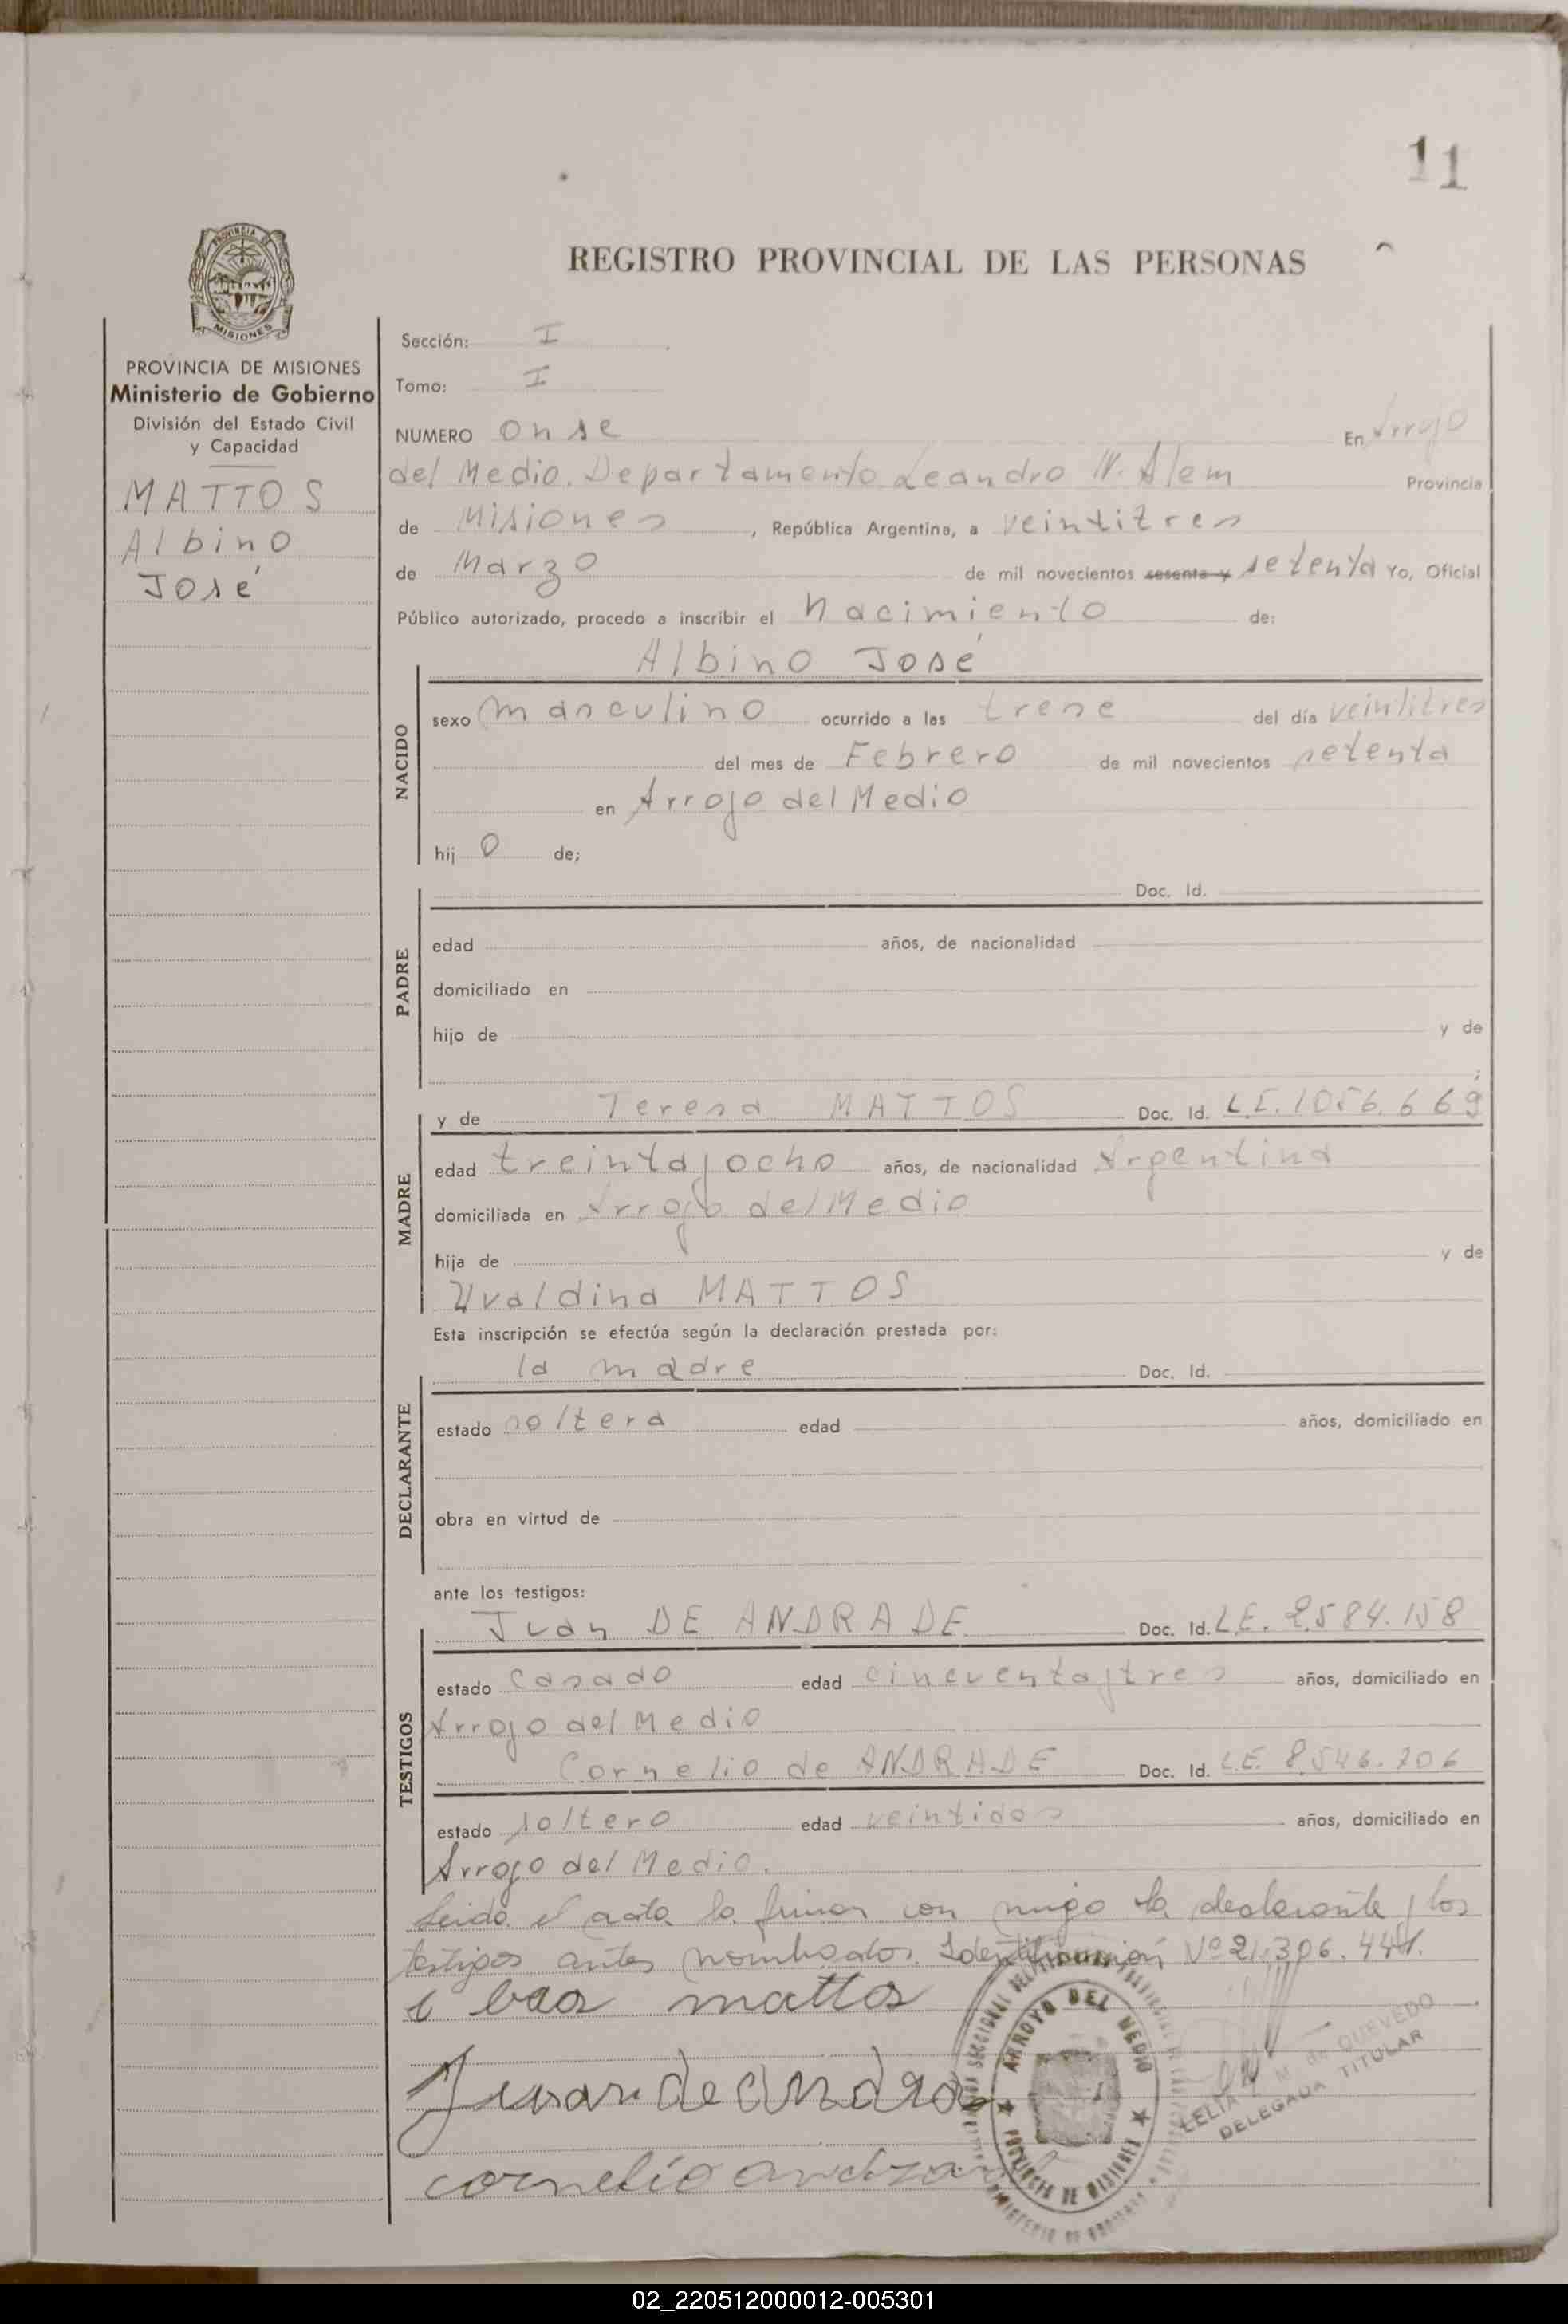 11
REGISTRO PROVINCIAL DE LAS PERSONAS
PROVINCIA DE
MISIONES
PROVINCIA DE MISIONES
Ministerio de Gobierno
División del Estado Civil
y Capacidad
MATTOS
Albino
José
Sección: I
Tomo: I
NUMERO Onse En Arroyo
del Medio. Departamento Leandro N. Alem Provincia
de Misiones, República Argentina, a veintitres
de Marzo de mil novecientos sesenta y setenta Yo, Oficial
Público autorizado, procedo a inscribir el Nacimiento de:
Albino José
NACIDO
sexo masculino ocurrido a las trese del día veintitres
del mes de Febrero de mil novecientos setenta
en Arroyo del Medio
hij o de;
PADRE
Doc. Id.
edad años, de nacionalidad
domiciliado en
hijo de y de
;
MADRE
y de Teresa MATTOS Doc. Id. L.E. 1056.669
edad treinta y ocho años, de nacionalidad Argentina
domiciliada en Arroyo del Medio
hija de y de
Uvaldina MATTOS
Esta inscripción se efectúa según la declaración prestada por:
DECLARANTE
la madre Doc. Id.
estado soltera edad años, domiciliado en
obra en virtud de
ante los testigos:
TESTIGOS
Juan DE ANDRADE Doc. Id. L.E. 2584.158
estado Casado edad cincuenta y tres años, domiciliado en
Arroyo del Medio
Cornelio de ANDRADE Doc. Id. L.E. 8.546.206
estado soltero edad veintidos años, domiciliado en
Arroyo del Medio.
Leida el acta la firman con migo la declarante y los
testigos antes nombrados. Identificación Nº 21.306.441.
mattos
Juan de Andra
cornelio
ARROYO DEL MEDIO
PROVINCIA DE MISIONES
LELIA M de QUEVEDO
DELEGADA TITULAR
02_220512000012-005301